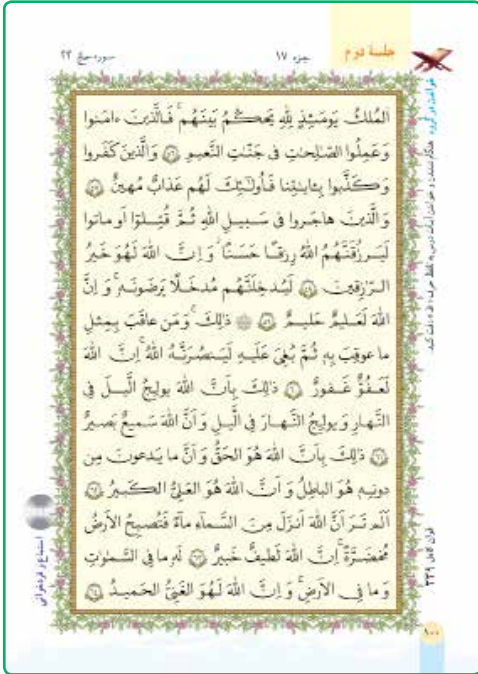 جلسهٔ دوم
جزء ۱۷
سوره حج ۲۲
اَلمُلکُ یَومَئِذٍ لِلّهِ یَحکُمُ بَینَهُم فَالَّذینَ ءامَنوا
وَ عَمِلُوا الصّالِحٰتِ فی جَنّٰتِ النَّعیمِ ۵۶ وَ الَّذینَ کَفَروا
وَ کَذَّبوا بِـٔایٰتِنا فَاُولٰـئِکَ لَهُم عَذابٌ مُهینٌ ۵۷
وَ الَّذینَ هاجَروا فی سَبیلِ اللهِ ثُمَّ قُتِلوا اَو ماتوا
لَیَرزُقَنَّهُمُ اللهُ رِزقًا حَسَنًا وَ اِنَّ اللهَ لَهُوَ خَیرُ
الرّٰزِقینَ ۵۸ لَیُدخِلَنَّهُم مُدخَلًا یَرضَونَهٗ وَ اِنَّ
اللهَ لَعَلیمٌ حَلیمٌ ۵۹ ذٰلِکَ وَ مَن عاقَبَ بِمِثلِ
ما عوقِبَ بِهٖ ثُمَّ بُغِیَ عَلَیهِ لَیَنصُرَنَّهُ اللهُ اِنَّ اللهَ
لَعَفُوٌّ غَفورٌ ۶۰ ذٰلِکَ بِاَنَّ اللهَ یولِجُ الَّیلَ فِی
النَّهارِ وَ یولِجُ النَّهارَ فِی الَّیلِ وَ اَنَّ اللهَ سَمیعٌ بَصیرٌ
۶۱ ذٰلِکَ بِاَنَّ اللهَ هُوَ الحَقُّ وَ اَنَّ ما یَدعونَ مِن
دونِهٖ هُوَ الباطِلُ وَ اَنَّ اللهَ هُوَ العَلِیُّ الکَبیرُ ۶۲
اَلَم تَرَ اَنَّ اللهَ اَنزَلَ مِنَ السَّماءِ ماءً فَتُصبِحُ الاَرضُ
مُخضَرَّةً اِنَّ اللهَ لَطیفٌ خَبیرٌ ۶۳ لَهٗ ما فِی السَّمٰوٰتِ
وَ ما فِی الاَرضِ وَ اِنَّ اللهَ لَهُوَ الغَنِیُّ الحَمیدُ ۶۴
استماع و فردخوانی
قرآن کامل ۳۳۹
۱۰۰